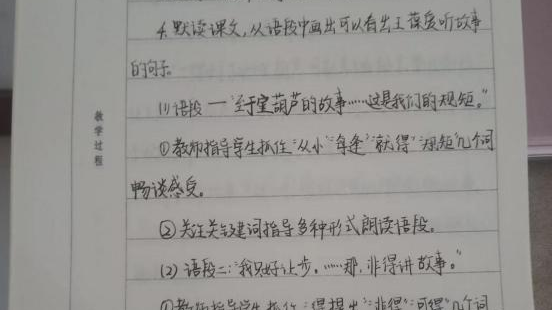 4. 默读课文,从语段中画出可以看出王葆爱听故事
的句子。
(1) 语段一 “至于宝葫芦的故事……这是我们的规矩。”
教学过程
① 教师指导学生抓住“从小”“每逢”“就得”“规矩”几个词
畅谈感受。
② 关注关键词指导多种形式朗读语段。
(2) 语段二:“我只好让步。……那,非得讲故事。”
① 教师指导学生抓住“得提出”“非得”“可得”几个词